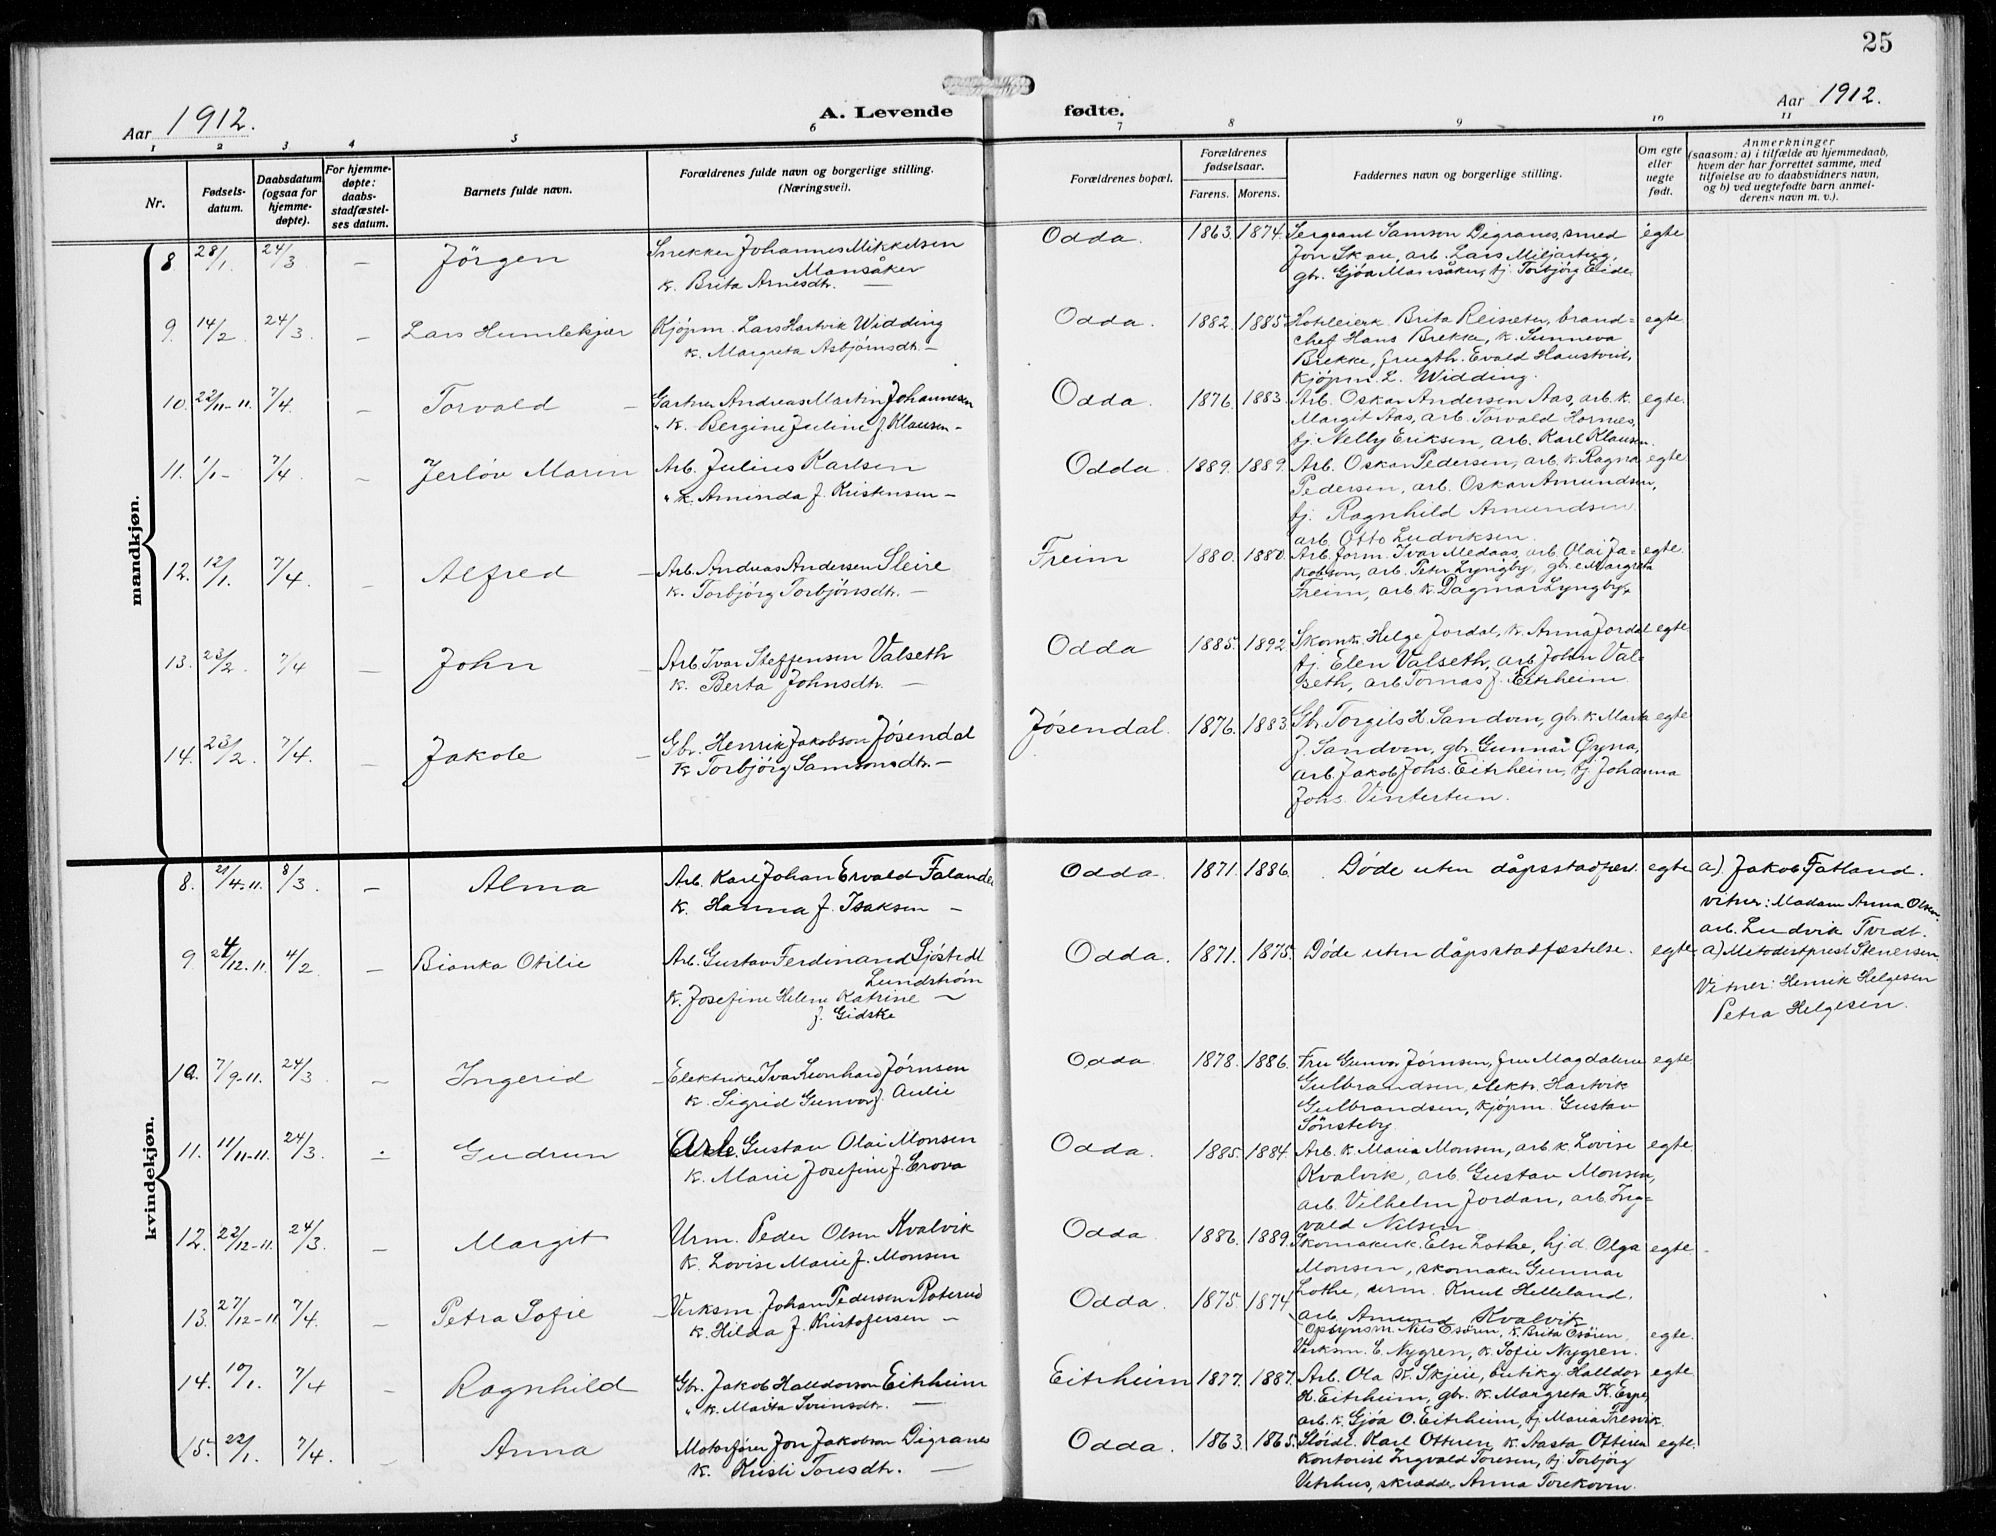 25
Aar 1912.
A. Levende fødte.
Aar 1912.
1 2 3 4 5 6 7 8 9 10 11
Nr.
Fødsels-
datum.
Daabsdatum
(ogsaa for
hjemme-
døpte).
For hjemme-
døpte:
daabs-
stadfæstel-
ses datum.
Barnets fulde navn.
Forældrenes fulde navn og borgerlige stilling.
(Næringsvei).
Forældrenes bopæl.
Forældrenes
fødselsaar.
Farens. Morens.
Faddernes navn og borgerlige stilling.
Om egte
eller
uegte
født.
Anmerkninger
(saasom: a) i tilfælde av hjemmedaab,
hvem der har forrettet samme, med
tilføielse av to daabsvidners navn,
og b) ved uegtefødte barn anmel-
derens navn m. v.).
mandkjøn.
8 28/1. 24/3 — Jörgen Snekker Johannes Mikkelsen Odda. 1863. 1874. Sergeant Samson Digranes, smed egte
Mansåker Jon Skau, arb. Lars Miljarteig,
k. Brita Arnesdtr. — gbr. Gjöa Mansåker, tj. Torbjörg Eide.
9. 14/2 24/3 — Lars Humlekjær Kjöpm. Lars Hartvik Widding Odda. 1882. 1885. Hoteleierk. Brita Reisæter, brand= egte
k. Margreta Asbjörnsdt. — chef Hans Brekke, k. Sunneva
Brekke, frugth. Evald Haustveit,
Kjöpm. L. Widding.
10. 22/11-11. 7/4. — Torvald — Gartner Andreas Martin Johannesen Odda. 1876. 1883. Arb. Oskar Andersen Aas, arb. k. egte.
" k. Bergine Juline f. Klausen — Margit Aas, arb. Torvald Hornes,
tj. Nelly Eriksen, arb. Karl Klausen.
11. 1/1 — 7/4. — Jerlöv Marin Arb. Julius Karlsen Odda. 1889. 1889. Arb. Oskar Pedersen, arb. k. Ragna egte
" k. Aminda f. Kristensen — Pedersen, arb. Oskar Amundsen,
tj. Ragnhild Amundsen
arb. Otto Ludviksen.
12. 12/1. 7/4. — Alfred — Arb. Andreas Andersen Sleire Freim 1880. 1880. Arb. form. Ivar Medaas, arb. Olai Ja- egte.
k. Torbjörg Torbjörnsdt. — kobson, arb. Peter Lyngby, gbr.e Margreta
Freim, arb. k. Dagmar Lyngby.
13. 23/2. 7/4 — John — Arb. Ivar Steffensen Valseth Odda 1885. 1892. Skom. Helge Jordal, k. Anna Jordal egte
k. Berta Johnsdtr. — tj. Elen Valseth, arb. John Val-
seth, arb. Tomas J. Eitrheim.
14. 23/2. 7/4. — Jakob — Gbr. Henrik Jakobson Jösendal Jösendal. 1876. 1883. Gbr. Torgils H. Sandven, gbr. k. Marta egte
k. Torbjörg Samsonsdtr. — J. Sandven, gbr. Gunnar Öyna,
arb. Jakob Johs. Eitrheim, tj. Johanna
Johs. Vintertun.
kvindekjøn.
8. 21/4-11. 8/3. — Alma Arb. Karl Johan Ervald Falander Odda. 1871. 1886. Döde uten dåpsstadfæst. egte a). Jakob Fatland.
k. Hanna f. Isaksen — vitner: Madam Anna Olsen
arb. Ludvik Tvedt.
9. 24/12-11. 4/2 — Bianka Otilie Arb. Gustav Ferdinand Sjöstedt Odda. 1871. 1875. Döde uten dåpsstadfæstelse. egte a) Metodistprest Stenersen.
Lundström
k. Josefine Helene Katrine — Vitner: Henrik Helgesen
f. Gidske Petra Helgesen.
10. 7/9-11. 24/3. — Ingerid — Elektriker Ivar Leonhard Jörnsen Odda. 1878. 1886. Fru Gunvor Jörnsen, fru Magdalene egte
k. Sigrid Gunvor f. Aulie Gulbrandsen, elektr. Hartvik
Gulbrandsen, kjöpm. Gustav
Sönsteby.
11. 11/11-11. 24/3. — Gudrun Arb. Gustav Olai Monsen Odda. 1885. 1884. Arb. k. Maria Monsen, arb. k. Lovise egte
k. Marie Josefine f. Erova Kvalvik, arb. Gustav Monsen,
arb. Vilhelm Jordan, arb. Ing-
vald Nilsen
12. 22/12-11. 24/3. — Margit Urm. Peder Olsen Kvalvik Odda 1886. 1889. Skomakerk. Else Lothe, hj.d. Olga egte —
k. Lovise Marie f. Monsen Monsen, skomaker Gunnar
Lothe, urm. Knut Helleland.
arb. Amund Kvalvik
13. 27/12-11. 7/4. — Petra Sofie — Verksm. Johan Pedersen Roterud Odda. 1875. 1874. Opsynsm. Nils Esören, k. Brita Esören, egte.
k. Hilda f. Kristofersen — Verksm. E. Nygren, k. Sofie Nygren.
14. 10/1. 7/4 — Ragnhild Gbr. Jakob Halldorson Eitrheim Eitrheim 1877. 1887. Arb. Ola K. Skjeie, butikg. Halldor egte
" k. Marta Sveinsdtr. — H. Eitrheim, gbr. k. Margreta K. Espe,
arb. k. Gjöa O. Eitrheim, tj. Maria Tresvik.
15. 22/1. 7/4. — Anna Motorförer Jon Jakobson Digranes Odda. 1863. 1865. Slöidl. Karl Otteren, k. Aasta Otteren egte.
k. Kristi Toresdtr. — Kontorist Ingvald Toresen, tj. Torbjörg
Vetrhus, skrædder Anna Torekoven.